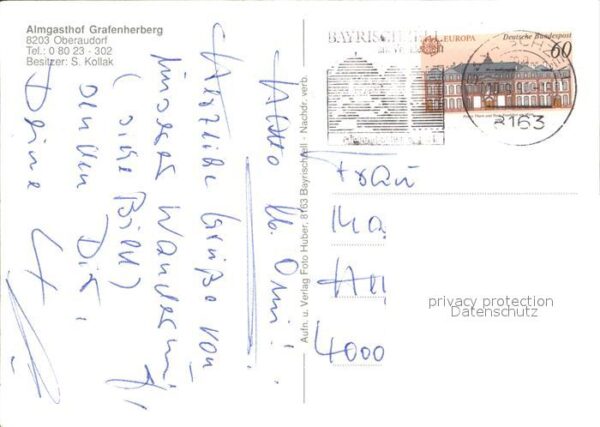 Almgasthof Grafenherberg
8203 Oberaudorf
Tel.: 0 80 23 - 302
Besitzer: S. Kollak
Hallo lb. Omi!
Herzliche Grüße von
unserer Wanderung
(siehe Bild)
senden Dir,
Deine
Aufn. u. Verlag Foto Huber, 8163 Bayrischzell - Nachdr. verb.
BAYRISCHZELL
EUROPA
Deutsche Bundespost
60
8163
Frau
4000
privacy protection
Datenschutz